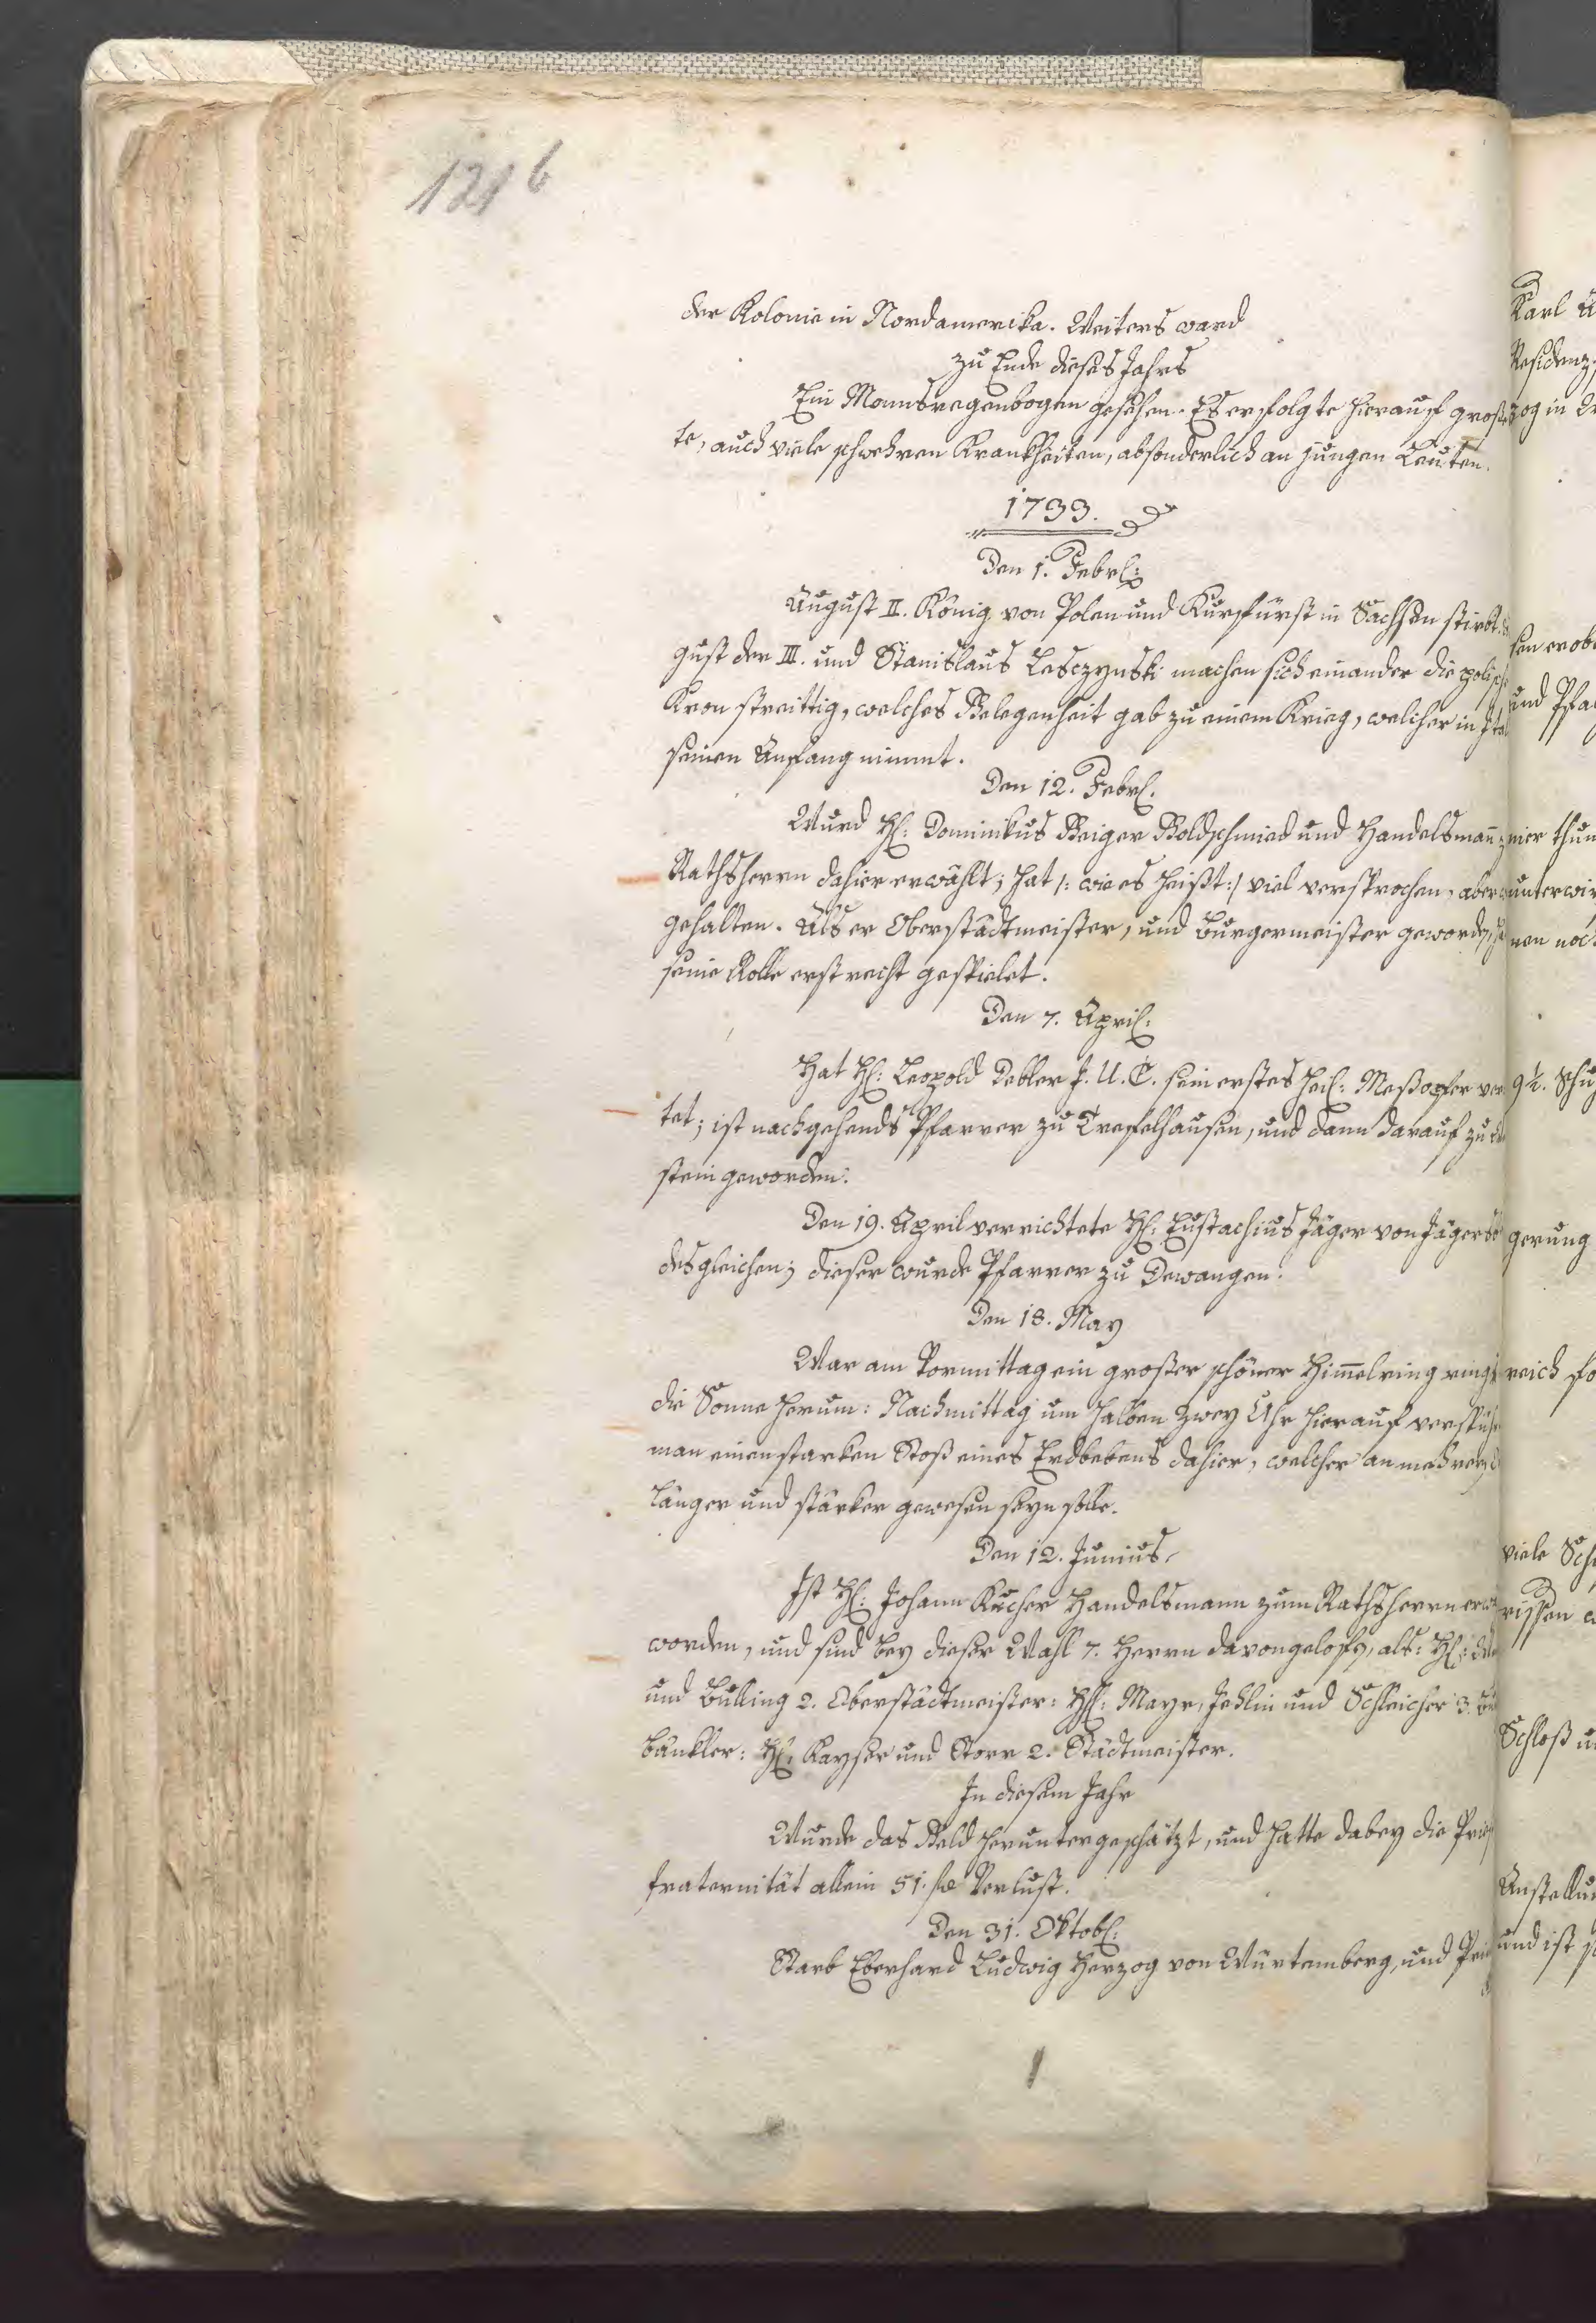 121 b
der Kolonie in Nordamerika. Weiters ward
zu Ende dieses Jahrs
Ein Monnsregenbogen gesehen. Es erfolgte hierauf gros
te, auch viele schwehren Krankheiten, absonderlich an jungen Leuten.
1733.
Den 1. Febrl:
August II. König von Polen und Kurfürst in Sachsen stirbt.
gust der III. und Stanislaus Lesczynski machen sich einander die polisch
Kron streittig, welches Gelegenheit gab zu einem Krieg, welcher in Ital
seinen Anfang nimmt.
Den 12. Febrl.
Wurd Hl: Dominikus Geiger Goldschmied und Handelsmann
Rathsherrn dahier erwählt; hat /: wie es heißt :/ viel versprochen, aber
gehalten. Als er Oberstädtmeister, und Burgermeister geworden,
seine Rolle erst recht gespielet.
Den 7. April:
Hat Hl: Leopold Debler J. U. C. sein erstes heil: Meßopfer ver
tet; ist nachgehends Pfarrer zu Treffelhausen, und dann darauf zu
stein geworden.
Den 19. April verrichtete Hl: Eustachius Jäger von Jägers
desgleichen; dieser wurde Pfarrer zu Dewangen.
Den 18. May
War am Vormittag ein großer schöner Himmelring rings
die Sonne herum: Nachmittag um halben zwey Uhr hierauf verspüh
man einen starken Stoß eines Erdbebens dahier, welcher an mehreren
länger und stärker gewesen seyn solle.
Den 12. Junius.
Ist Hl: Johann Kucher Handelsmann zum Rathsherrn erw
worden, und sind bey dieser Wahl 7. Herrn davongeloffen, als: Hl:
und Bulling 2. Oberstädtmeister: Hl: Mayr, Jehlin und Schleicher 3.
bänkler: Hl: Kayser und Storr 2. Städtmeister.
In diesem Jahr
Wurde das Geld heruntergeschätzt, und hatte dabey die Pries
fraternität allein 51. fl Verlust.
Den 31. Oktobl:
Starb Eberhard Ludwig Herzog von Würtemberg, und Prinz
Karl
Residenz
zog in
sen erob
und Pfa
nier thun
unterwir
nen noch
9½. Schu
gerung
reich
viele Sch
rissen
Schloß
Anstellu
und ist